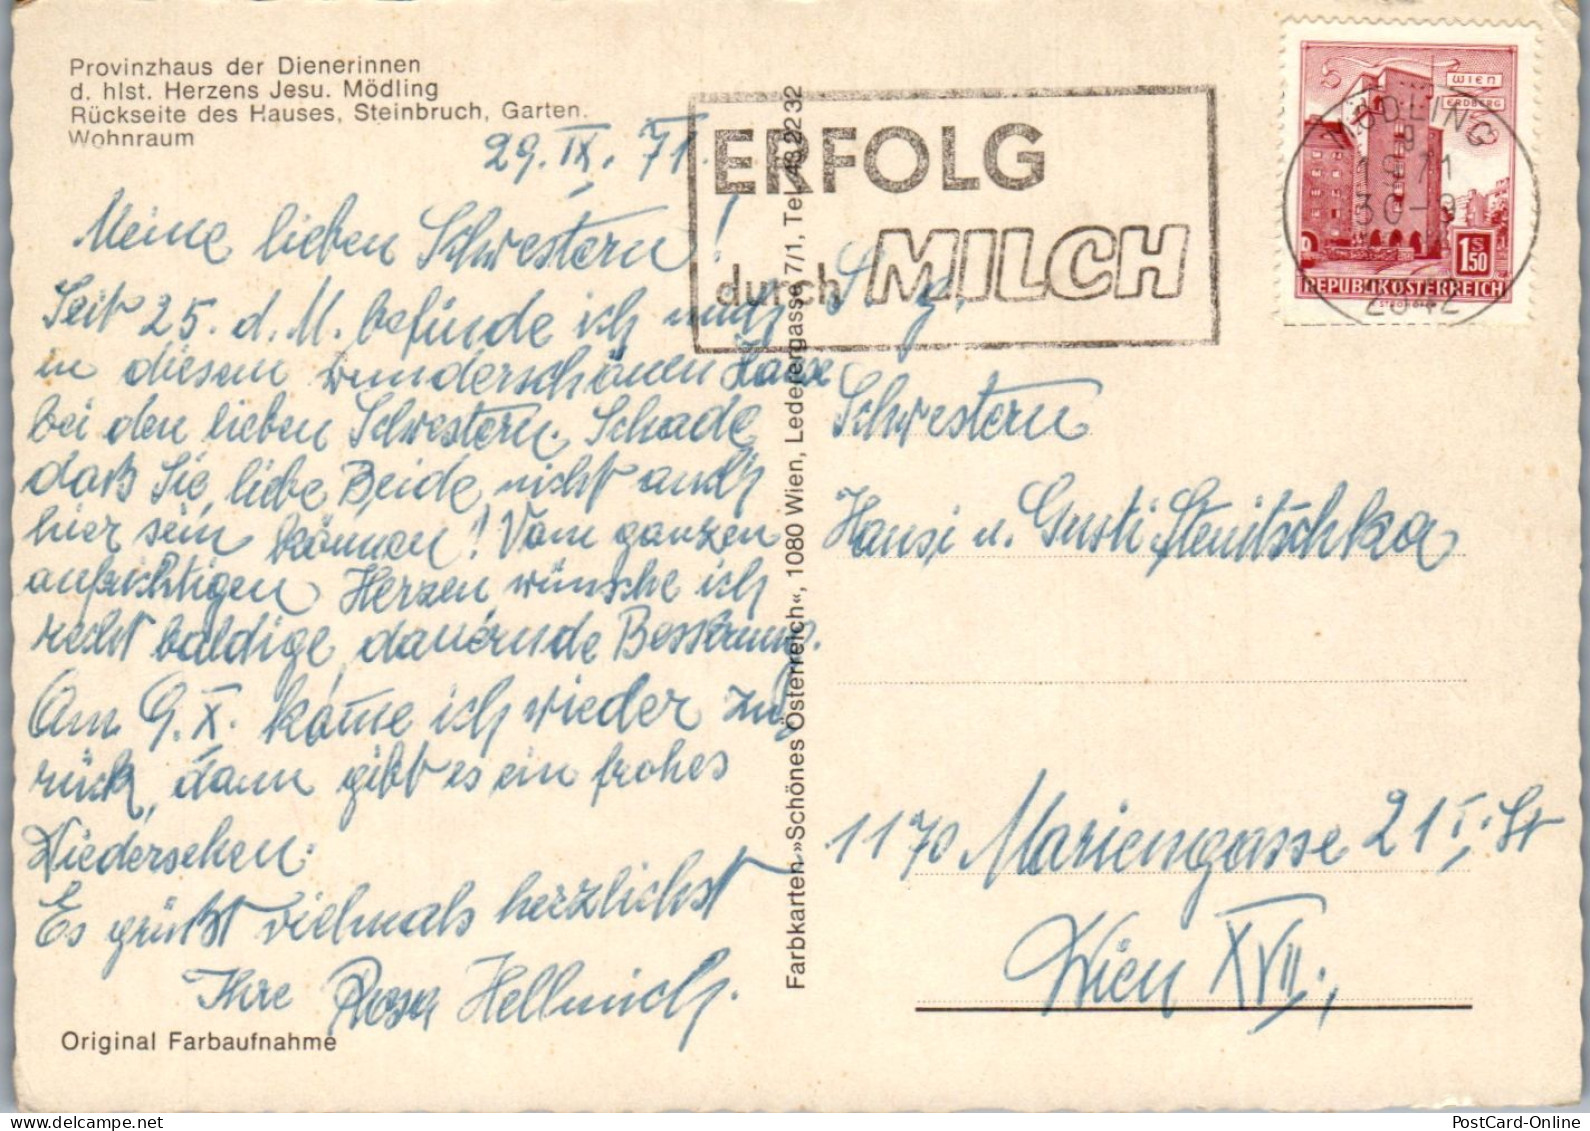 Provinzhaus der Dienerinnen
d. hlst. Herzens Jesu. Mödling
Rückseite des Hauses, Steinbruch, Garten.
Wohnraum
29. IX. 71.
Meine lieben Schwestern!
Seit 25. d. M. befinde ich mich
in diesem wunderschönen Hause
bei den lieben Schwestern. Schade,
daß Sie, liebe Beide nicht auch
hier sein können! Vom ganzen
aufrichtigen Herzen wünsche ich
recht baldige, dauernde Besserung.
Am 9. X. komme ich wieder zu-
rück, dann gibt es ein frohes
Wiedersehen.
Es grüßt vielmals herzlichst
Ihre Rosa Hellmich.
Original Farbaufnahme
Farbkarten »Schönes Österreich«, 1080 Wien, Lederergasse 7/1, Tel. 43 22 32
ERFOLG
durch MILCH
WIEN
ERDBERG
1S50
REPUBLIK ÖSTERREICH
MÖDLING
9
1971
30-9
2342
S. g.
Schwestern
Hansi u. Gusti Stenitschka
1170 Mariengasse 21 I. St
Wien XVII.,
PostCard-Online